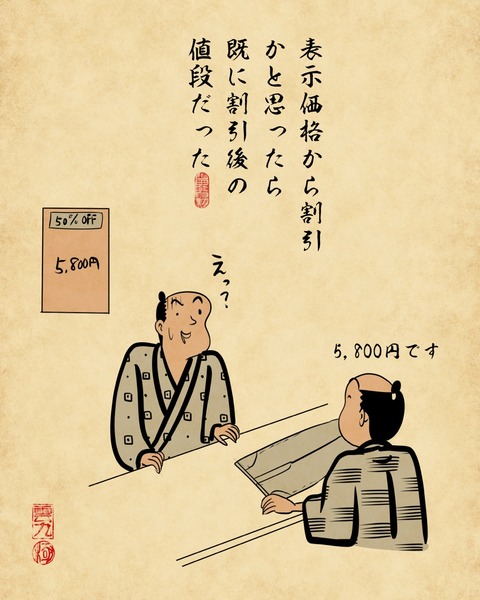 表示価格から割引
かと思ったら
既に割引後の
値段だった
50% OFF
5,800円
えっ?
5,800円です